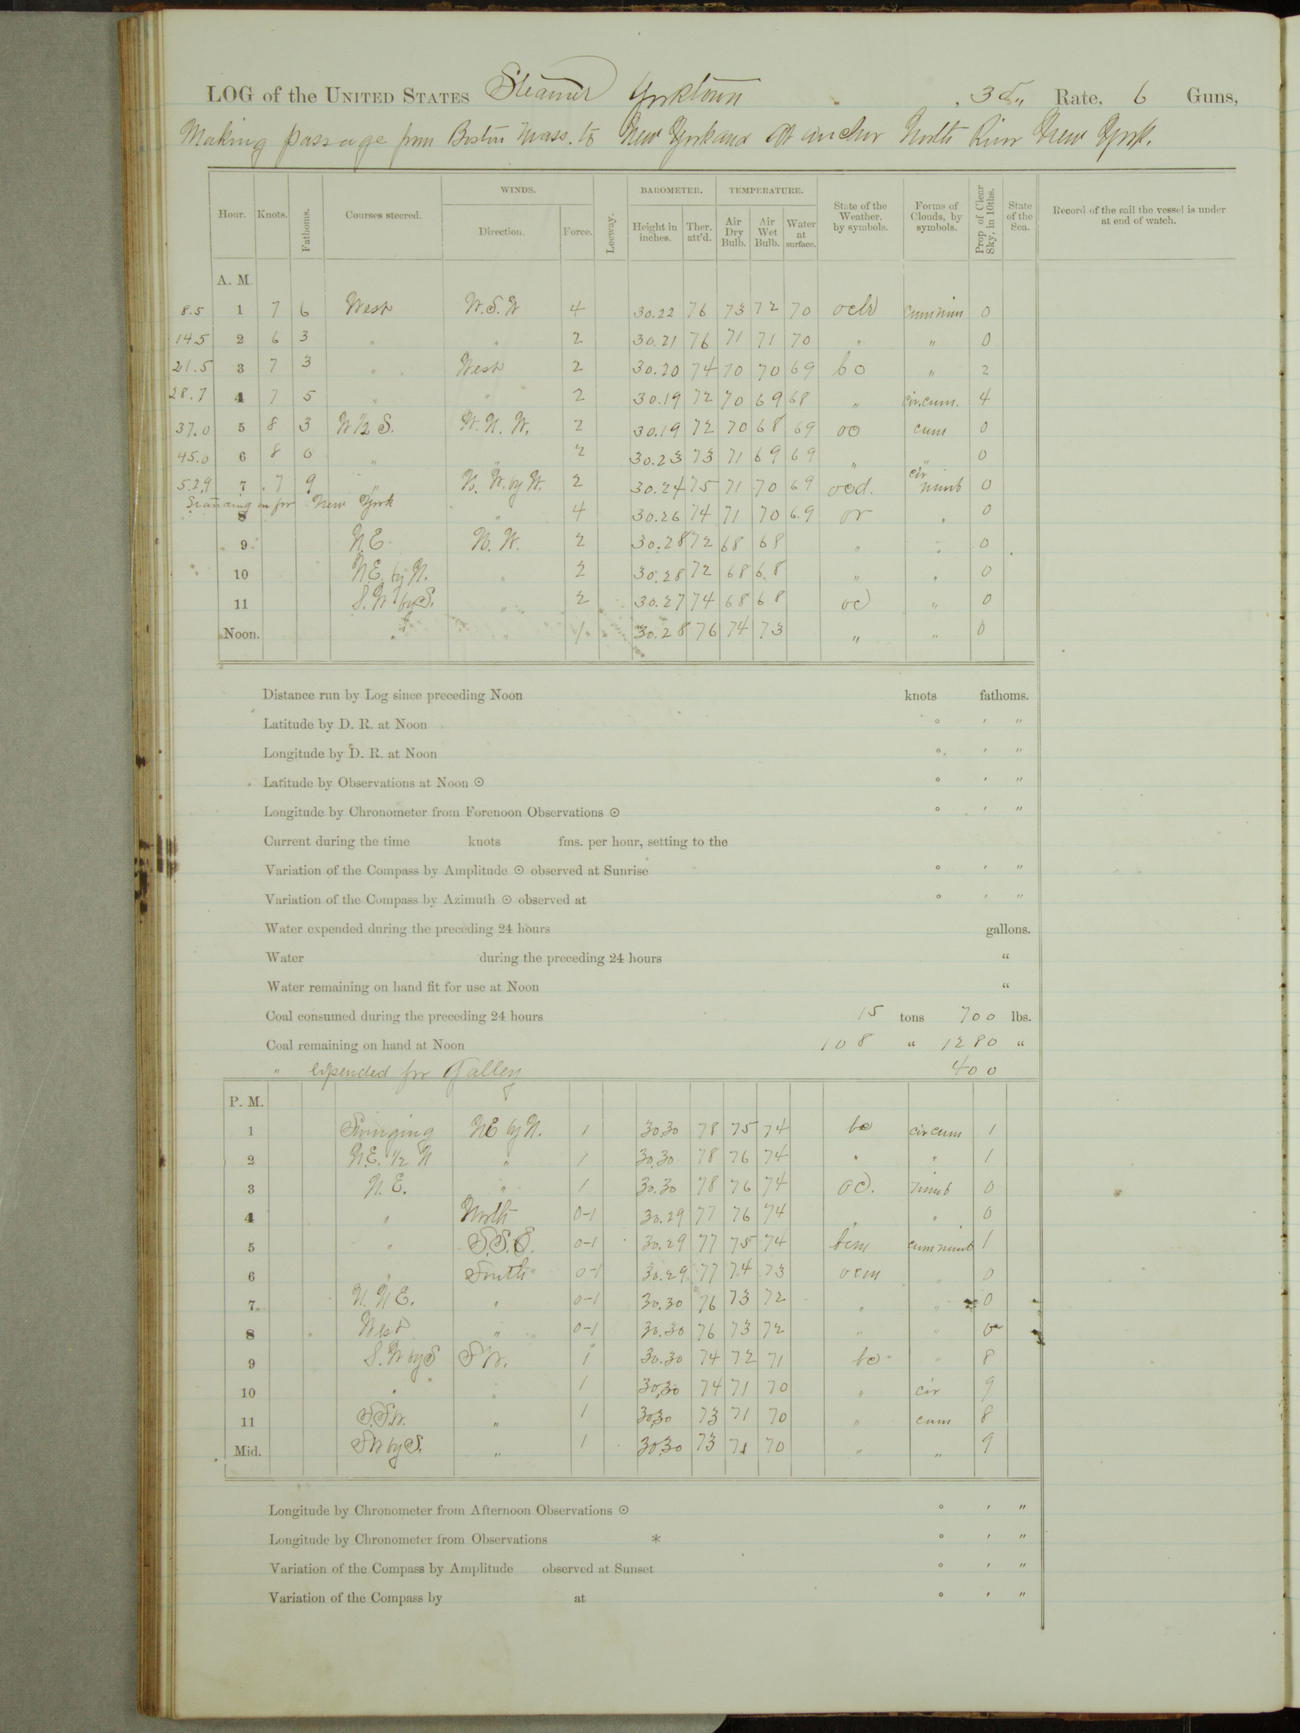 LOG of the UNITED STATES Steamer Yorktown, 3d Rate, 6 Guns,
Making passage from Boston Mass. to New York and at anchor North River New York.
Hour. Knots. Fathoms. Courses steered. WINDS. Direction. Force. Leeway. BAROMETER. Height in inches. Ther. att'd. TEMPERATURE. Air Dry Bulb. Air Wet Bulb. Water at surface. State of the Weather. by symbols. Forms of Clouds, by symbols. Prop of Clear Sky, in 10ths. State of the Sea. Record of the sail the vessel is under at end of watch.
A. M.
8.5 1 7 6 West W.S.W 4 30.22 76 73 72 70 cum nim 0
14.5 2 6 3 " " 2 30.21 76 71 71 70 " " 0
21.5 3 7 3 " West 2 30.20 74 70 70 69 bo " 2
28.7 4 7 5 " " 2 30.19 72 70 69 68 " cir.cum. 4
37.0 5 8 3 W ½ S. W.N.W. 2 30.19 72 70 68 69 oo cum 0
45.0 6 8 0 " " 2 30.23 73 71 69 69 " " 0
52.9 7 7 9 " N.W. by W. 2 30.24 75 71 70 69 ood. cir nimb 0
Standing in for New York
8 " 4 30.26 74 71 70 69 or " 0
9 N.E. N.W. 2 30.28 72 68 68 " " 0
10 N.E. by N. " 2 30.28 72 68 68 " " 0
11 S.W. by S. " 2 30.27 74 68 68 oc " 0
Noon. " " 1 30.28 76 74 73 " " 0
Distance run by Log since preceding Noon knots fathoms.
Latitude by D. R. at Noon ° ′ ″
Longitude by D. R. at Noon ° ′ ″
Latitude by Observations at Noon ☉ ° ′ ″
Longitude by Chronometer from Forenoon Observations ☉ ° ′ ″
Current during the time knots fms. per hour, setting to the
Variation of the Compass by Amplitude ☉ observed at Sunrise ° ′ ″
Variation of the Compass by Azimuth ☉ observed at ° ′ ″
Water expended during the preceding 24 hours gallons.
Water during the preceding 24 hours "
Water remaining on hand fit for use at Noon "
Coal consumed during the preceding 24 hours 15 tons 700 lbs.
Coal remaining on hand at Noon 108 " 1280 "
" expended for Galley 400
P. M.
1 Swinging NE by N. 1 30.30 78 75 74 bc cir cum 1
2 N.E. 1/2 N " 1 30.30 78 76 74 " " 1
3 N.E. " 1 30.30 78 76 74 oc. nimb 0
4 " North 0-1 30.29 77 76 74 " " 0
5 " S.S.E. 0-1 30.29 77 75 74 bcm cum nimb 1
6 South 0-1 30.29 77 74 73 ocm " 0
7 N.N.E. " 0-1 30.30 76 73 72 " " 0
8 West " 0-1 30.30 76 73 72 " " 0
9 S.W by S S W. 1 30.30 74 72 71 bc " 8
10 " " 1 30.30 74 71 70 " cir 9
11 S.S.W. " 1 30.30 73 71 70 " cum 8
Mid. SW by S. " 1 30.30 73 71 70 " " 9
Longitude by Chronometer from Afternoon Observations ☉ ° ′ ″
Longitude by Chronometer from Observations * ° ′ ″
Variation of the Compass by Amplitude observed at Sunset ° ′ ″
Variation of the Compass by at ° ′ ″